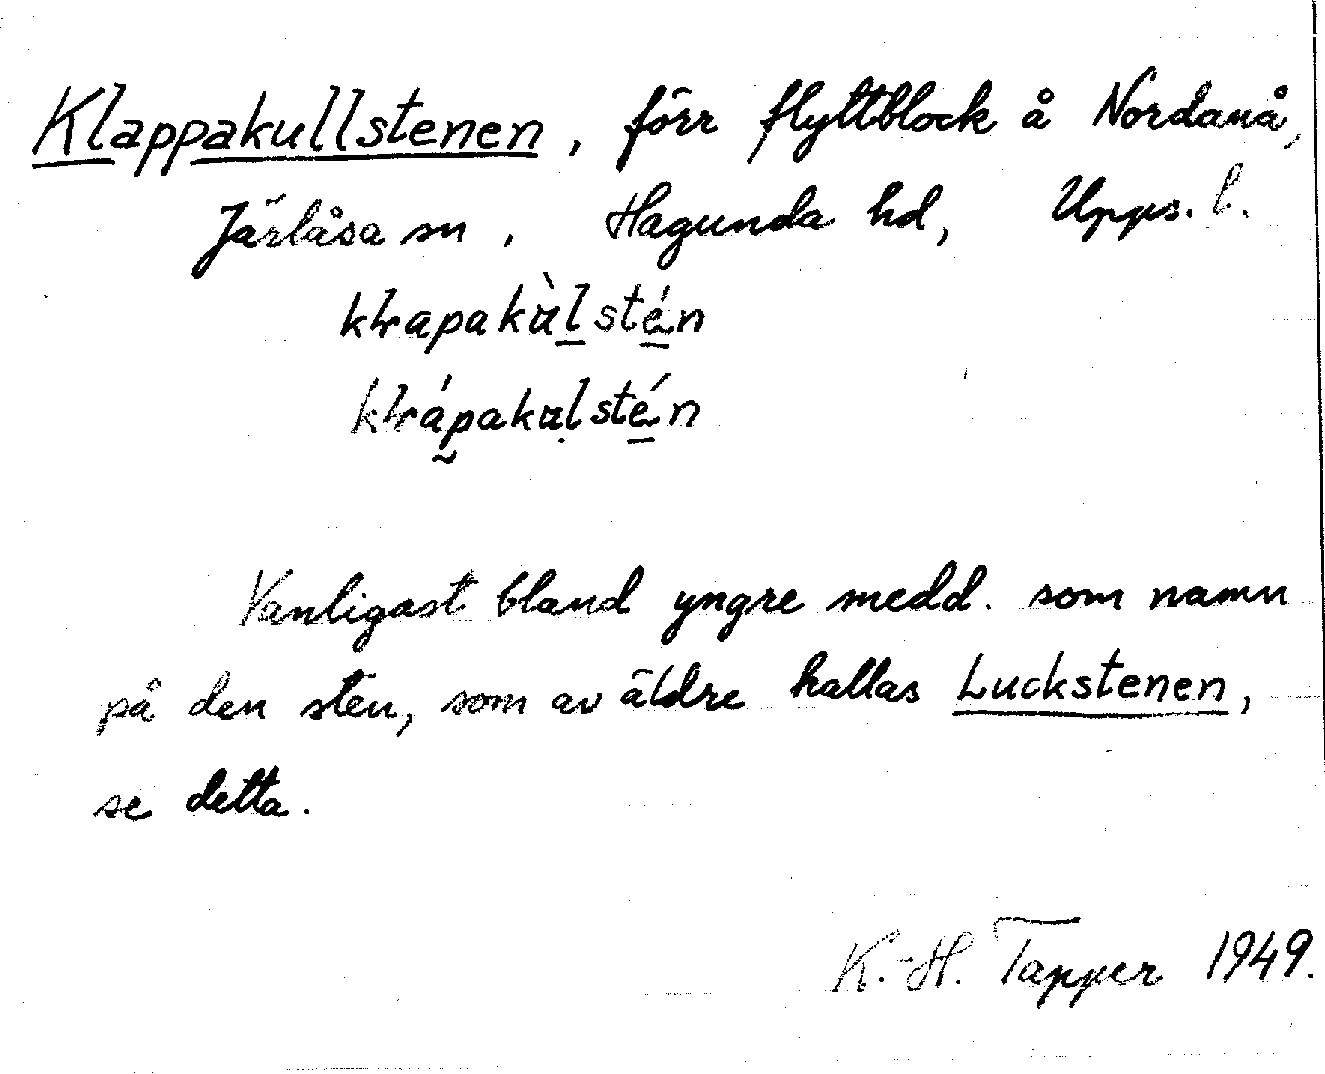 Klappakullstenen, förr flyttblock å Nordanå,
Järlåsa sn, Hagunda hd, Upps. l.

Vanligast bland yngre medd. som namn
på den sten, som av äldre kallas Luckstenen,
se detta.
K.-H. Tapper 1949.